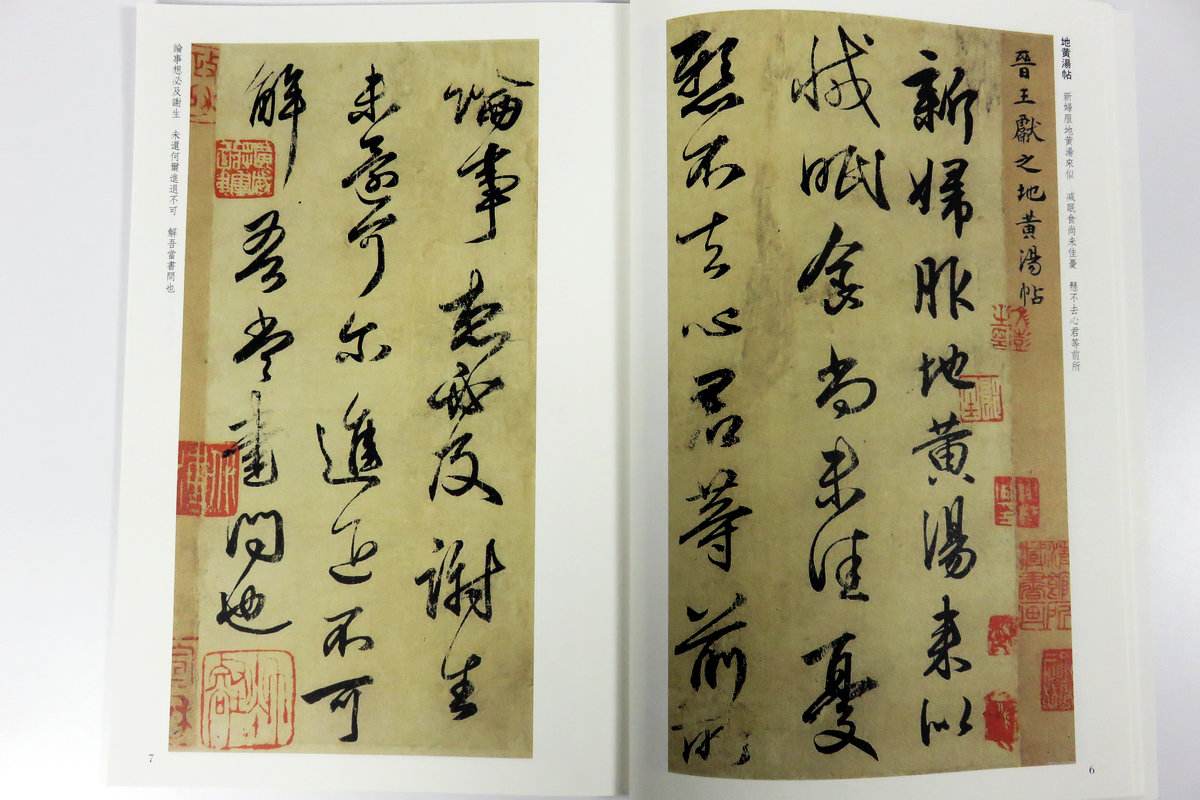 地黄湯帖　新婦服地黄湯來似　減眠食尚未佳憂　懸不去心君等前所
晉王獻之地黄湯帖
新婦服地黄湯来似
減眠食尚未佳憂
懸不去心君等前所
6
論事想必及謝生
未還何尔進退不可
解吾當書問也
論事想必及謝生　未還何爾進退不可　解吾當書問也
7